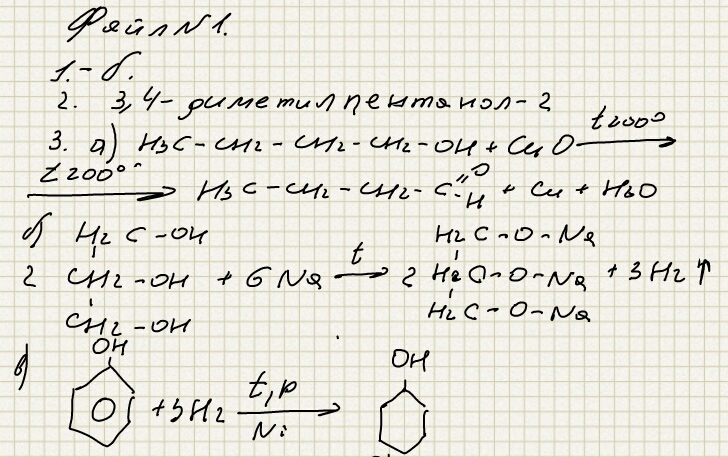 Файл №1.
1. - б.
2. 3,4-диметилпентанол-2
3. а) H3C-CH2-CH2-CH2-OH + CuO t200° →
t200° → H3C-CH2-CH2-C=O-H + Cu + H2O
б) H2C-OH H2C-O-Na
2 CH2-OH + 6Na t → 2 H2C-O-Na + 3H2↑
CH2-OH H2C-O-Na
в) OH OH
+3H2 t,p → Ni